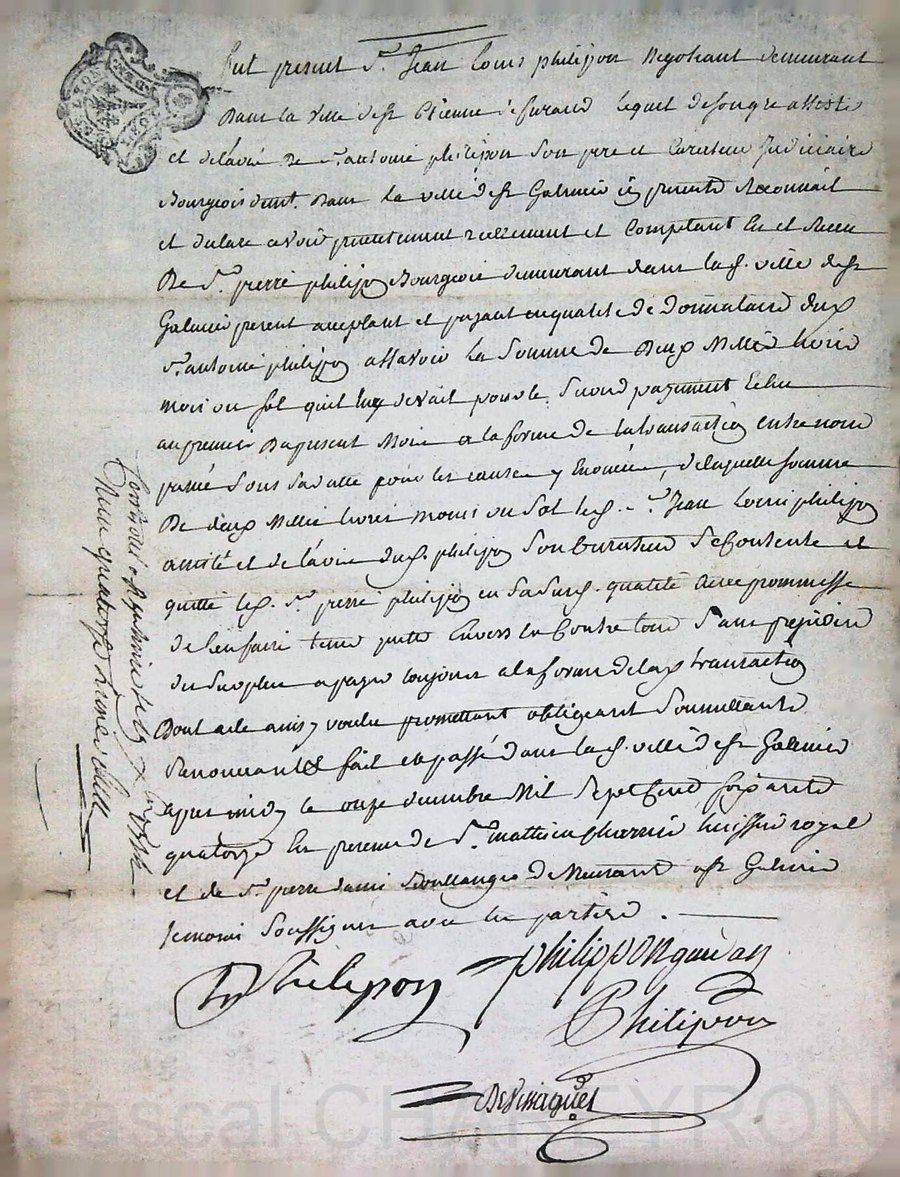 fut present Sr. Jean Louis philipon Negotiant demeurant
Dans la ville de St Etienne de furand lequel de son gre assisté
et de lavis De Sr. antoine philipon Son pere et Curateur Judiciaire
Bourgeois demt. Dans la ville de St Galmier icy present Reconnait
et declare avoir presentement reellement et Comptant Eu et Receu
De Sr. pierre philipon Bourgeois demeurant dans lad. ville de St
Galmier present acceptant et payant en qualité de Donnataire dud.
Sr. antoine philipon assavoir la Somme de Deux Mille livres
moins un sol quil luy devait pour le Second payement Echu
au premier Du present Mois a la forme de la transaction entre nous
passé Sous Sa datte pour les causes y Enoncées, de laquelle Somme
De deux Mille livres moins un Sol led. Sr. Jean Louis philipon
assisté et de lavis dud. philipon Son Curateur Se Contente et
quitte led. Sr. pierre philipon en Sa Susd. qualité avec prommesse
de len faire tenir quitte Envers et Contre tous Sans prejudice
du Surplus a payer toujours a la forme de lad. transaction
Dont acte ainsy voulu promettant obligeant Soumettant
Renoncant & fait et passé dans lad. ville de St Galmier
apres midy le onze decembre Mil Sept Cent soixante
quatorze En presence de Sr. mathieu huissier royal
et de Sr. pierre Boullanger demeurant a St Galmier
temoins Soussignes avec les parties.
Philipon
philippon
Philipon
quatorze livres
Pascal CHAREYRON